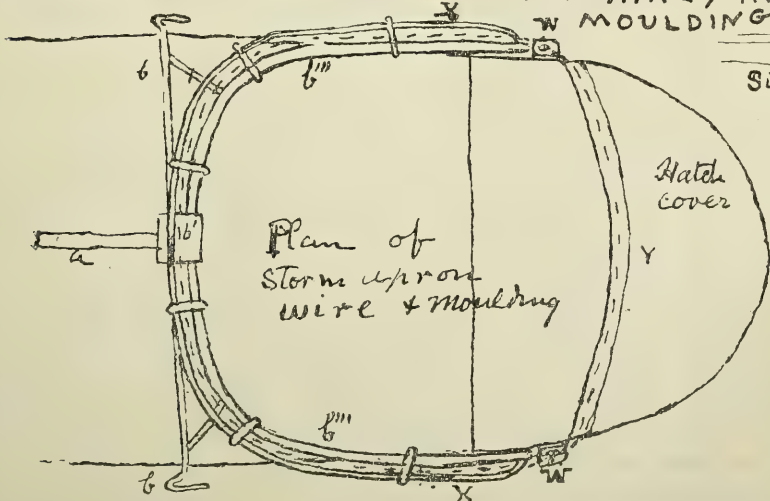 MOULDING
X
W
b
b'''
Hatch
cover
b'
a
Plan of
Storm apron
wire & moulding
Y
b'''
b
X
W